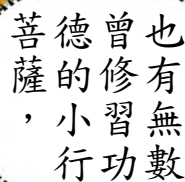 也有無數
曾修習功
德的小行
菩薩，